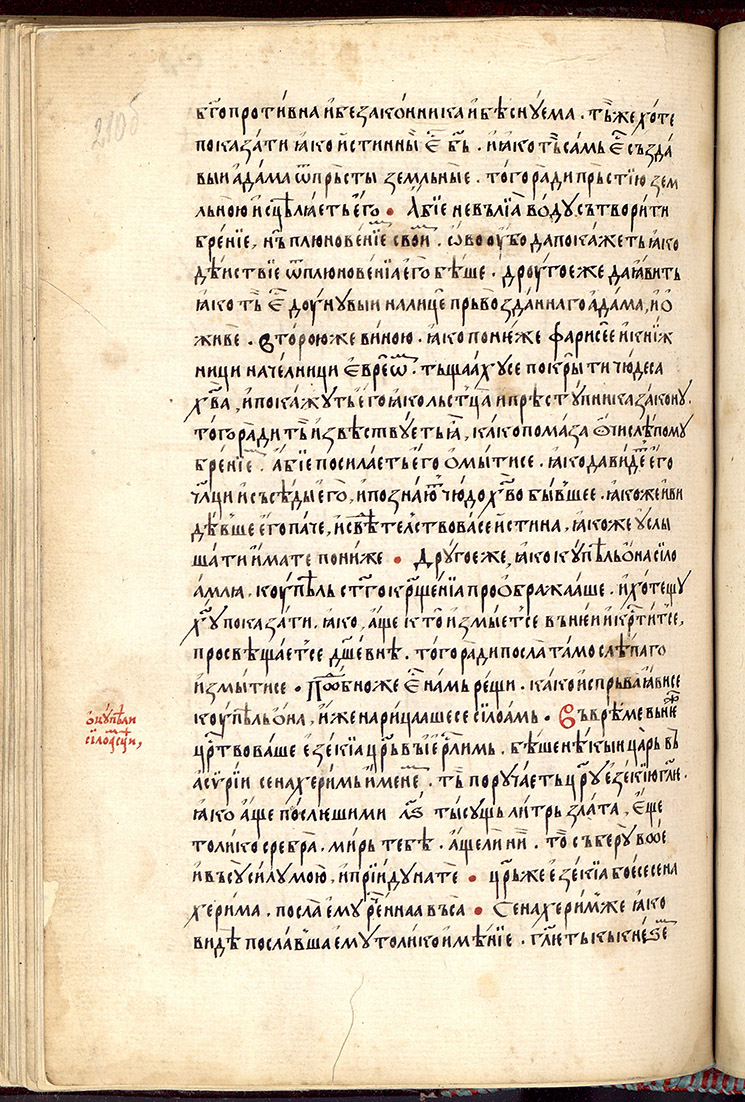 210б
бг҃опроти́вна и҆безако́нника и҆бѣснꙋ́ема . тъ́же хо́те
показа́ти ꙗ҆́ко и҆́стинны е҆́ бъ҃ . и҆ ꙗ҆́ко тъ́ са́мь е҆́ създа́
выи а҆да́ма ѿ пръ́сты земльны́е . того̀ра́ди пръ́стїю зем
льно́ю и҆сцѣлꙗ́еть є҆го̀ • а҆́бїе невълїа̀ во́дꙋ сътвори́ти
бре́нїе, нъ плюнове́нїе свои́ . ѡ҆́во ᲂу҆́бо да пока́жеть ꙗ҆́ко
дѣ́иствїе ѿ плюнове́нїа є҆го̀ бѣ́ше . дрꙋго́е же да ꙗ҆ви́ть
ꙗ҆́ко тъ́ е҆́ дᲂу́нꙋвыи на лицѐ пръвозда́ннаго а҆да́ма, и҆ ѻ҆
живѐ . второ́ю же вино́ю . ꙗ҆́ко пони́же фарисе́е и҆ кни́ж
ници наче́лници є҆вре́ѡ . тъща́ахꙋсе покры́ти чю́деса
хв҃а , и҆ пока́жꙋть є҆го̀ ꙗ҆́ко льстца̀ и҆ прѣстꙋ́пника зако́нꙋ .
того̀ра́ди тъ́ и҆звѣ́ствꙋеть ꙗ҆̀, ка́ко пома́за ѻ҆́чи слѣ́помꙋ
бре́нїе . а҆́бїе посила́еть є҆го̀ ѻ҆мы́тисе . ꙗ҆́ко да ви́де є҆го̀
чл҃ци и҆ съсѣ́ды є҆го̀, и҆ позна́ю чю́до хв҃о бы́вшее . ꙗ҆́коже и҆ ви
дѣ́вше є҆го̀ па́че, и҆ свѣ́тeлствова се и҆́стина, ꙗ҆́коже ᲂу҆слы́
шати и҆́мате пони́же • дрꙋго́е же, ꙗ҆́ко кꙋпѣ́ль ѻ҆́на сїло
а҆́млꙗ . кᲂупѣ́ль ст҃го крщ҃е́нїа проѻ҆бража́аше . и҆ хоте́щꙋ
хꙋ҃ показа́ти . ꙗ҆́ко, а҆́ще кто̀ и҆змы́етсе въ не́и и҆ кр҃ти́тсе,
просвѣща́етсе дш҃е́внѣ . того̀ра́ди посла̀ та́мо слѣ́паго
и҆змы́тисе . подо́бно же е҆́ на́мь рещѝ . ка́ко и҆спръ́ва ꙗ҆ви́се
кᲂупѣ́ль ѻ҆́на, и҆́же нарица́ашесе сїлоа́мь . въ врѣ́ме вънѥ
ѻ҆ кꙋпѣ́ли
сїло́амсцѣи,
цр҃твова́ше є҆зе́кїа цр҃ь въ їе҆рл҃и́мь . бѣ́ше нѣ́кыи ца́рь въ
а҆сѷрі́и сенахери́мь и҆́мене . тъ́ порꙋча́еть цр҃ꙋ є҆зе́кїю гл҃ѥ .
ꙗ҆́ко а҆́ще послю́ши ми л҃ ты́сꙋщь ли́трь зла́та , є҆́ще
толи́ко сребра̀ . ми́рь тебѣ̀ . а҆́ще ли нѝ . то̀ съберꙋ̀ вое
и҆ въсꙋ си́лꙋ мою̀, и҆ прїи́дꙋ на тѐ • цр҃ь же є҆зе́кїа бое́се сена
херима . посла̀ є҆мꙋ̀ рече́нная въса̀ • Сенахери́мже ꙗ҆́ко
ви́дѣ посла́вша є҆мꙋ̀ толи́ко и҆мѣ́нїе . гл҃еть къ кне́ѕе